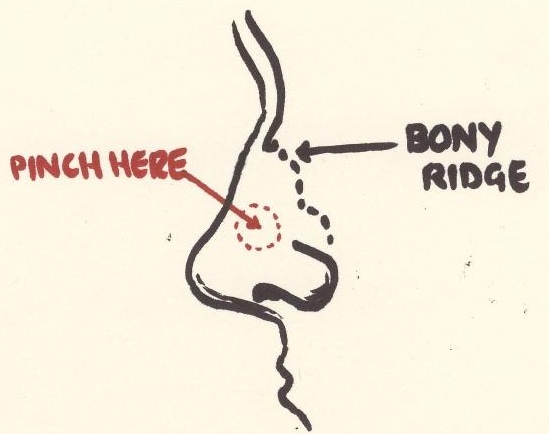 PINCH HERE
BONY
RIDGE